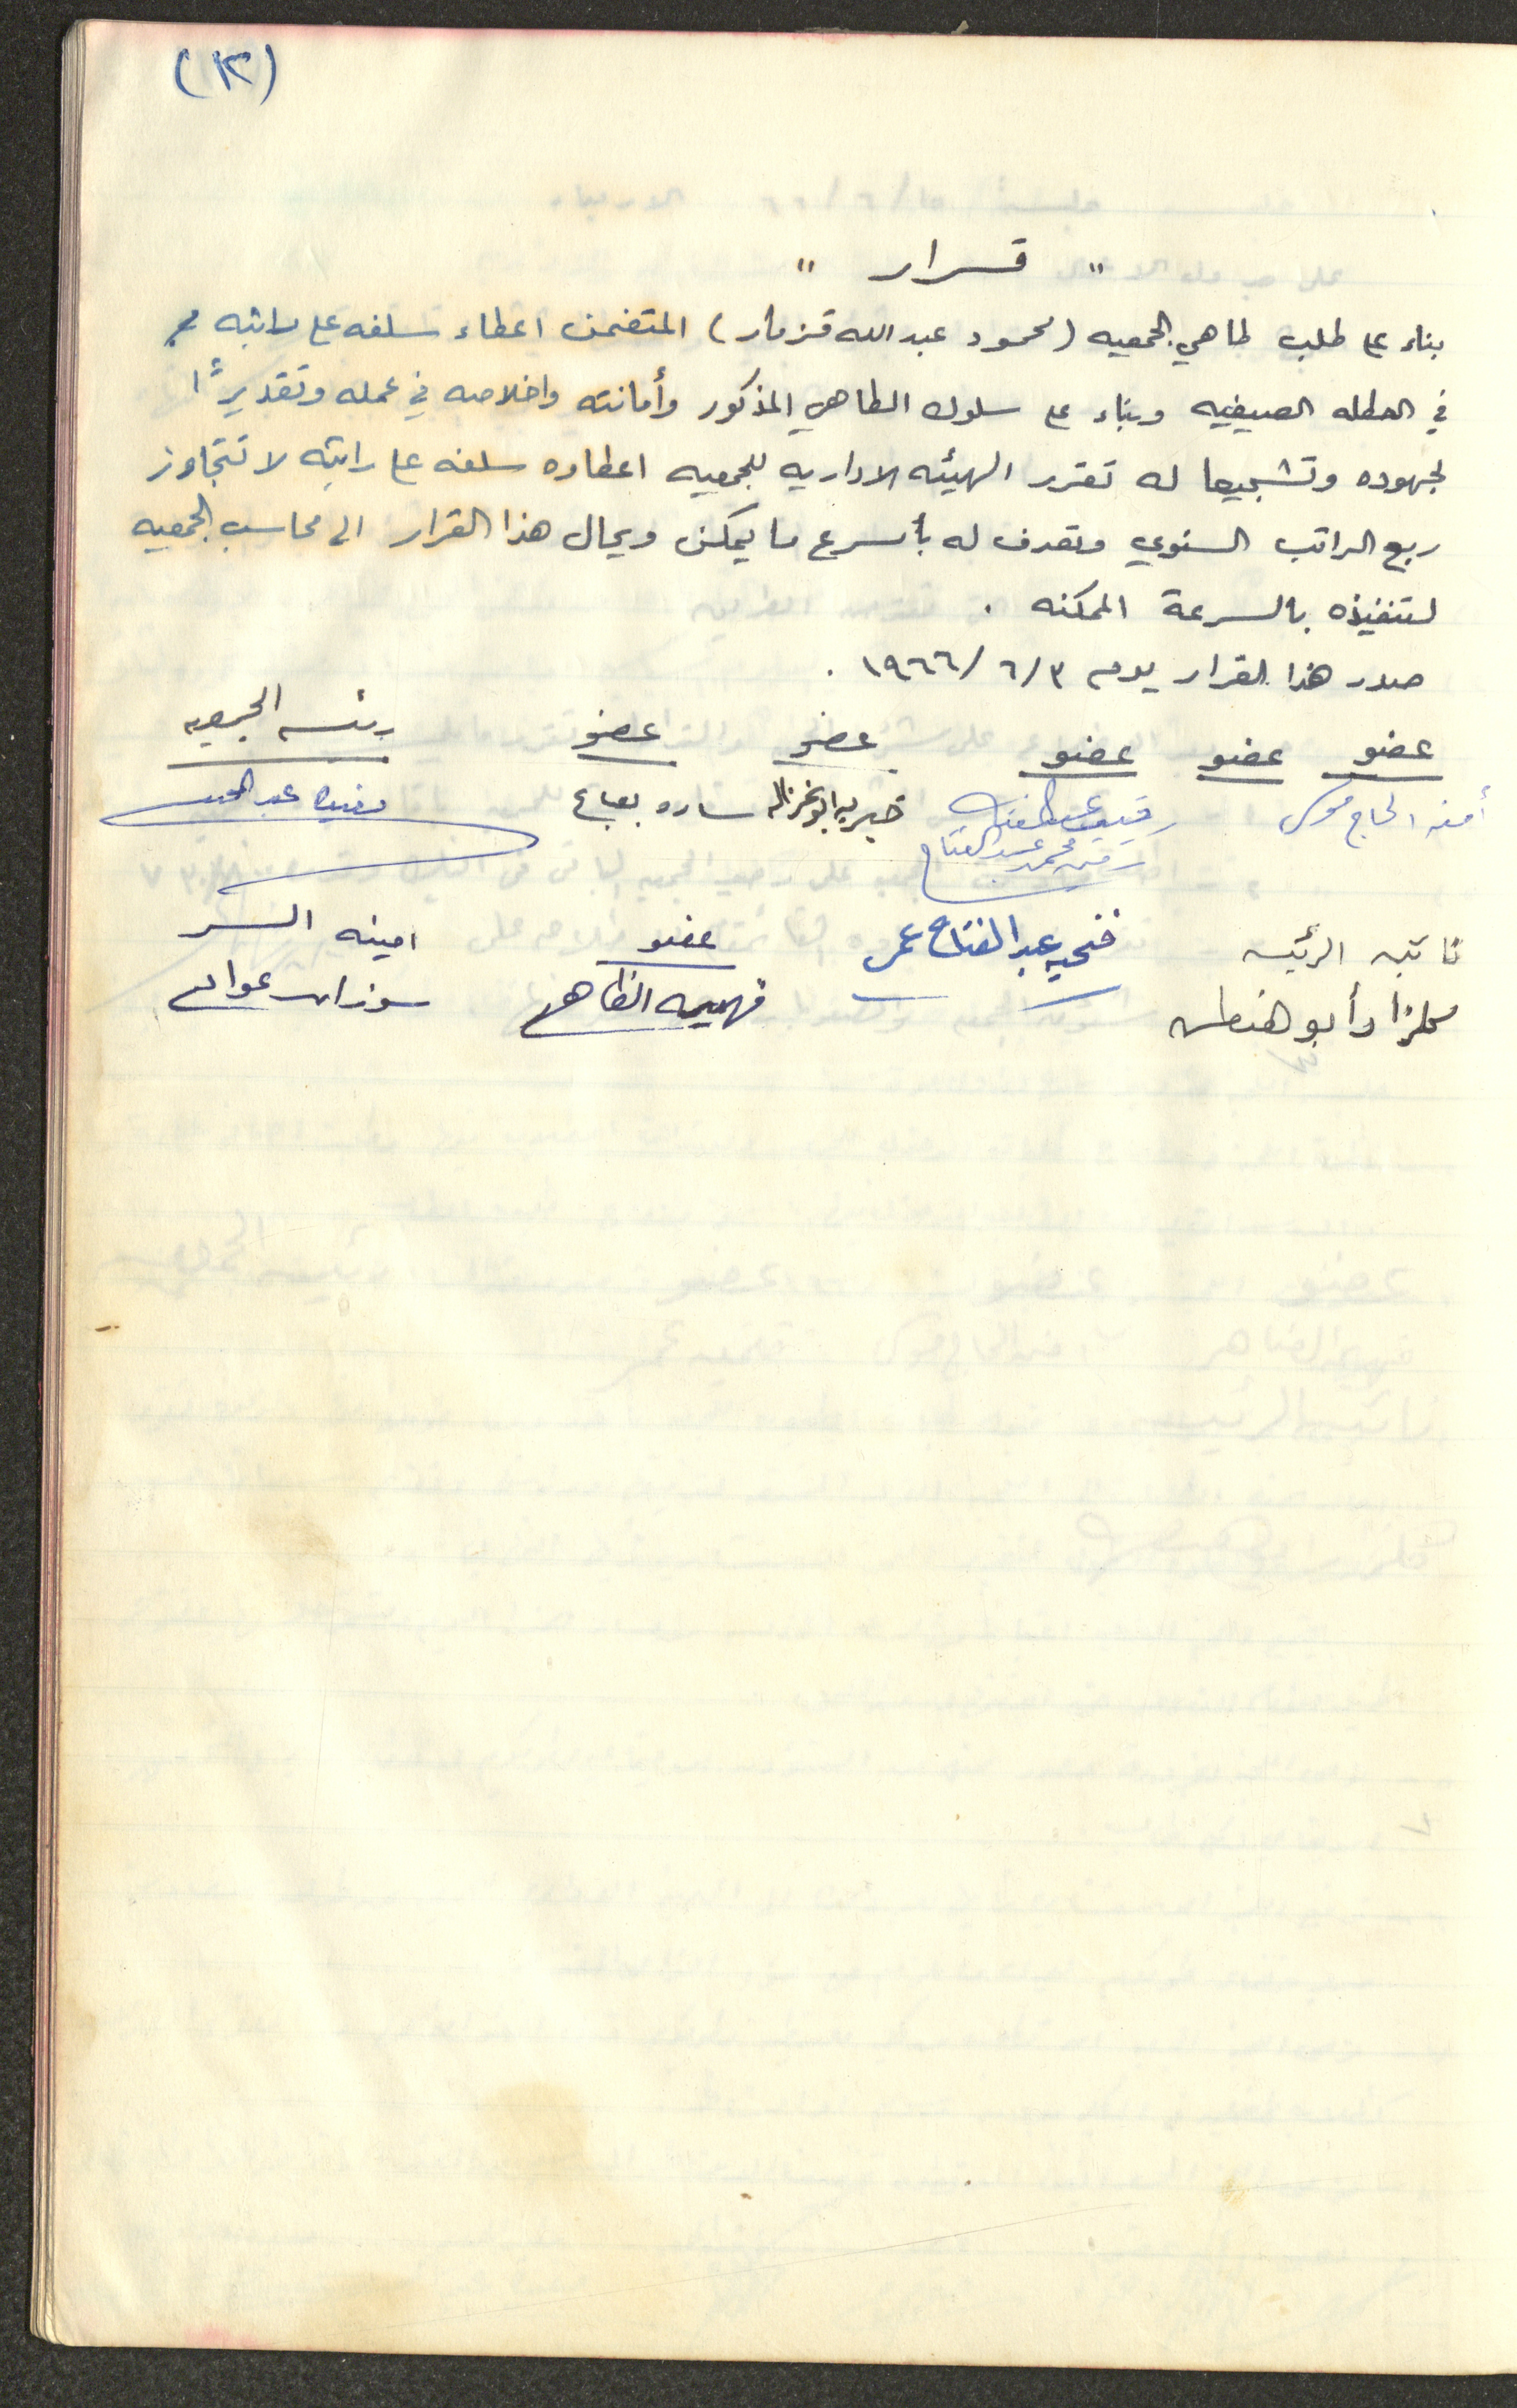 (١٢)
" قرار "
بناء على طلب طاهي الجمعيه (محمود عبدالله قزمار) المتضمن اعطاء سلفه على راتبه
في العطله الصيفيه وبناء على سلوك الطاهي المذكور وأمانته واخلاصه في عمله وتقديرًا
لجهوده وتشجيعا له تقرر الهيئه الاداريه للجمعيه اعطاءه سلفه على راتبه لا تتجاوز
ربع الراتب السنوي وتصرف له بأسرع ما يمكن ويحال هذا القرار الى محاسب الجمعيه
لتنفيذه بالسرعة الممكنه .
صدر هذا القرار يوم ٣/٦/١٩٦٦ .
عضو عضو عضو عضو عضو رئيسه الجمعيه
أمنه الحاج موسى رقيه عبد الفتاح خيريه ابو غزاله ساره بعباع مفيده عبد
محمد عبد الفتاح
نائبه الرئيسه فتحيه عبد الفتاح عمر عضو امينه السر
أبو هنطش فهيمه الظاهر سوزان